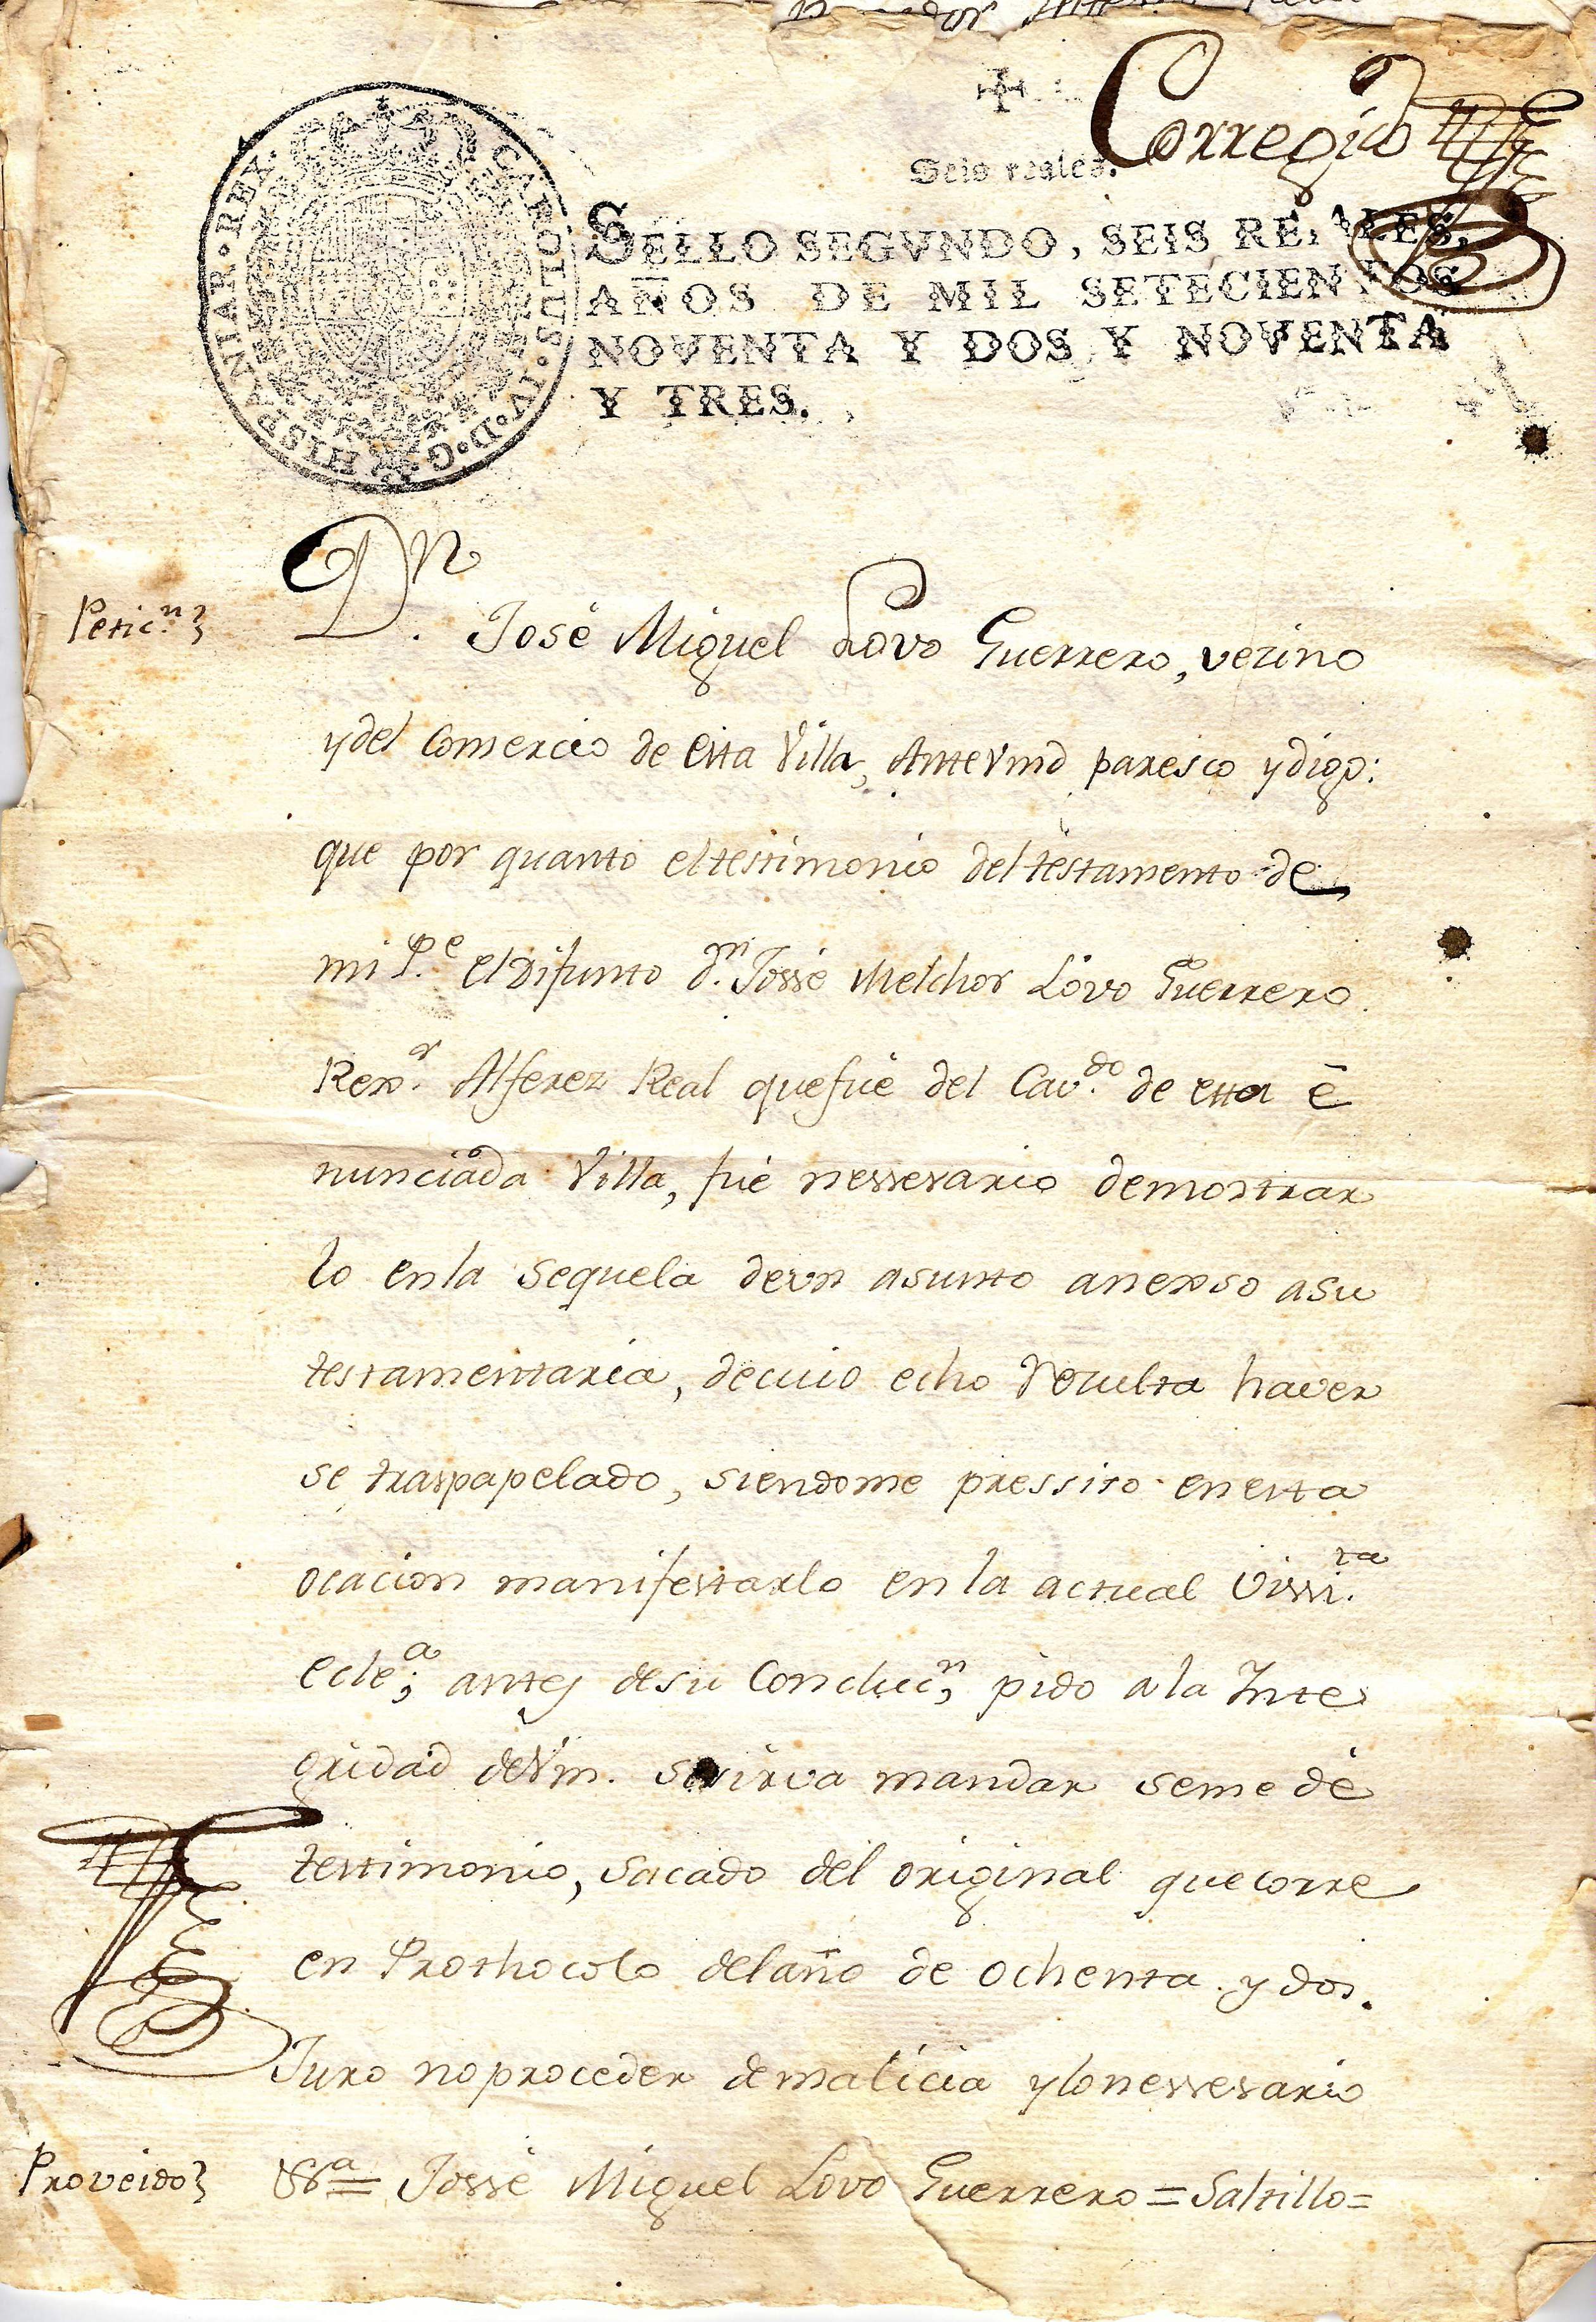 Corregido
Seis reales.
CAROLUS·IV·D·G·HISPANIAR·REX·
SELLO SEGVNDO, SEIS REALES,
AÑOS DE MIL SETECIENTOS
NOVENTA Y DOS, Y NOVENTA
Y TRES.
Peticn.
Dn. José Miguel Lovo Guerrero, vezino
y del Comercio de esta Villa, Ante Vmd paresco y digo:
que por quanto el testimonio del testamento de
mi Pe. el Difunto dn. Jossé Melchor Lovo Guerrero
Rexr. Alferez Real que fué del Cavdo. de esta é
nunciada Villa, fué nessesario demostrar
lo en la sequela de vn asunto anexso a su
testamentaria, de cuio echo resulta haver
se traspapelado, siendome pressiso en esta
ocacion manifestarlo en la actual Vissita.
eclea; antes de su Conclucn, pido a la Inte
gridad de Vm. se sirva mandar se me dé
testimonio, sacado del original que corre
en Prothocolo del año de ochenta y dos.
Juro no proceder de malicia y lo nessesario
&a= Jossé Miguel Lovo Guerrero = Saltillo =
Proveido